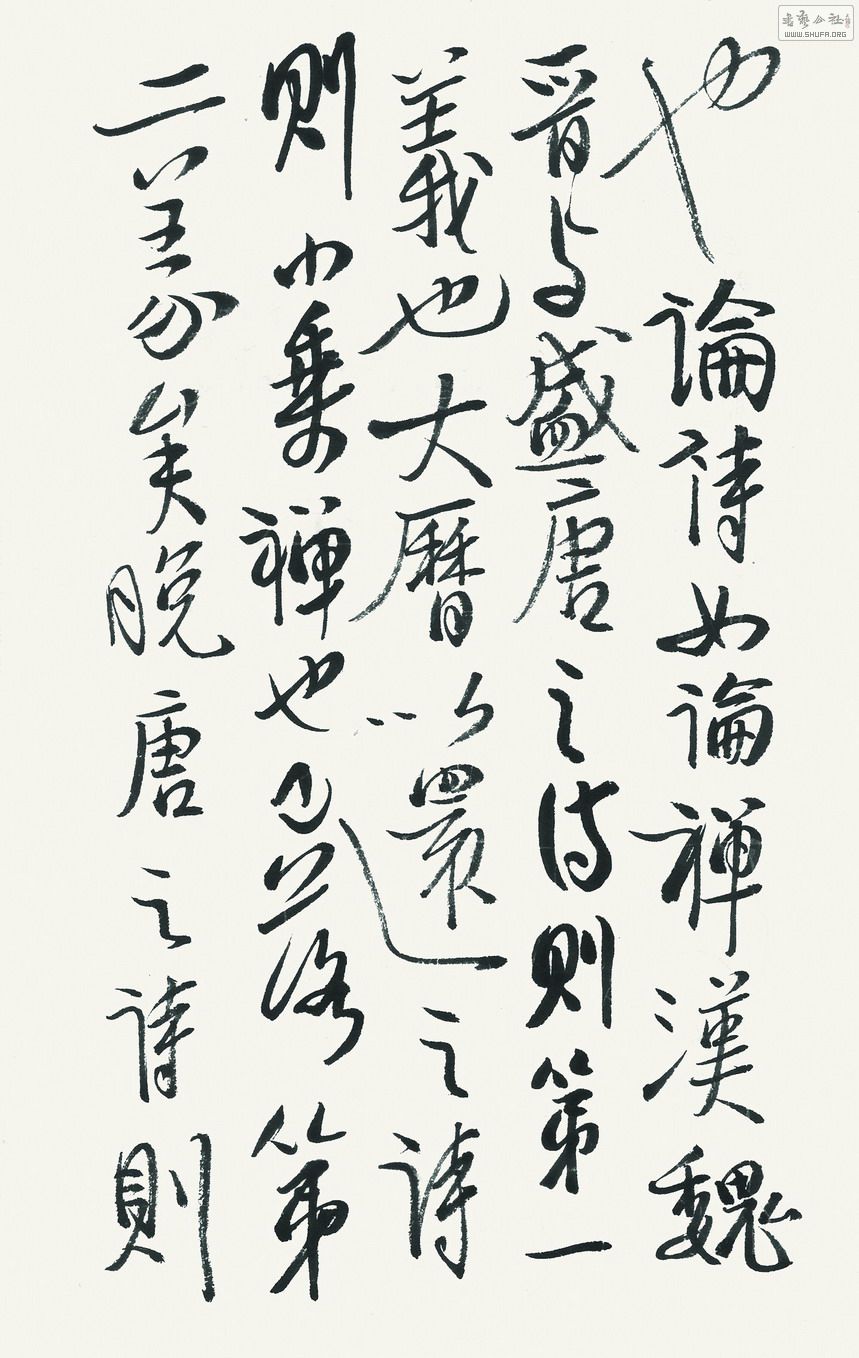 也論詩如論禪漢魏
晉與盛唐之詩則第一
義也大曆以還之詩
則小乘禪也已落第
二義矣晚唐之詩則
書藝公社
WWW.SHUFA.ORG